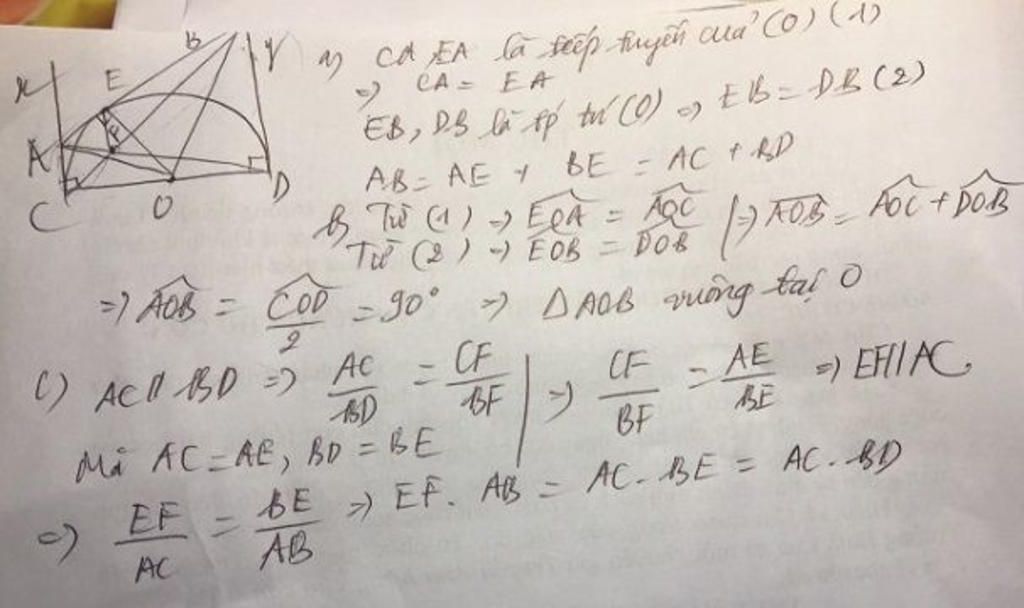 x
B
y
E
F
A
C
O
D
a) CA, EA là tiếp tuyến của (O) (1)
=> CA = EA
EB, DB là tp từ (O) => EB = DB (2)
AB = AE + BE = AC + BD
b) Từ (1) => \widehat{EOA} = \widehat{AOC} | => \widehat{AOB} = \widehat{AOC} + \widehat{DOB}
Từ (2) => \widehat{EOB} = \widehat{DOB}
=> \widehat{AOB} = \frac{\widehat{COD}}{2} = 90° => ΔAOB vuông tại O
c) AC // BD => \frac{AC}{BD} = \frac{CF}{BF} | => \frac{CF}{BF} = \frac{AE}{BE} => EF // AC.
Mà AC = AE, BD = BE
=> \frac{EF}{AC} = \frac{BE}{AB} => EF. AB = AC. BE = AC. BD